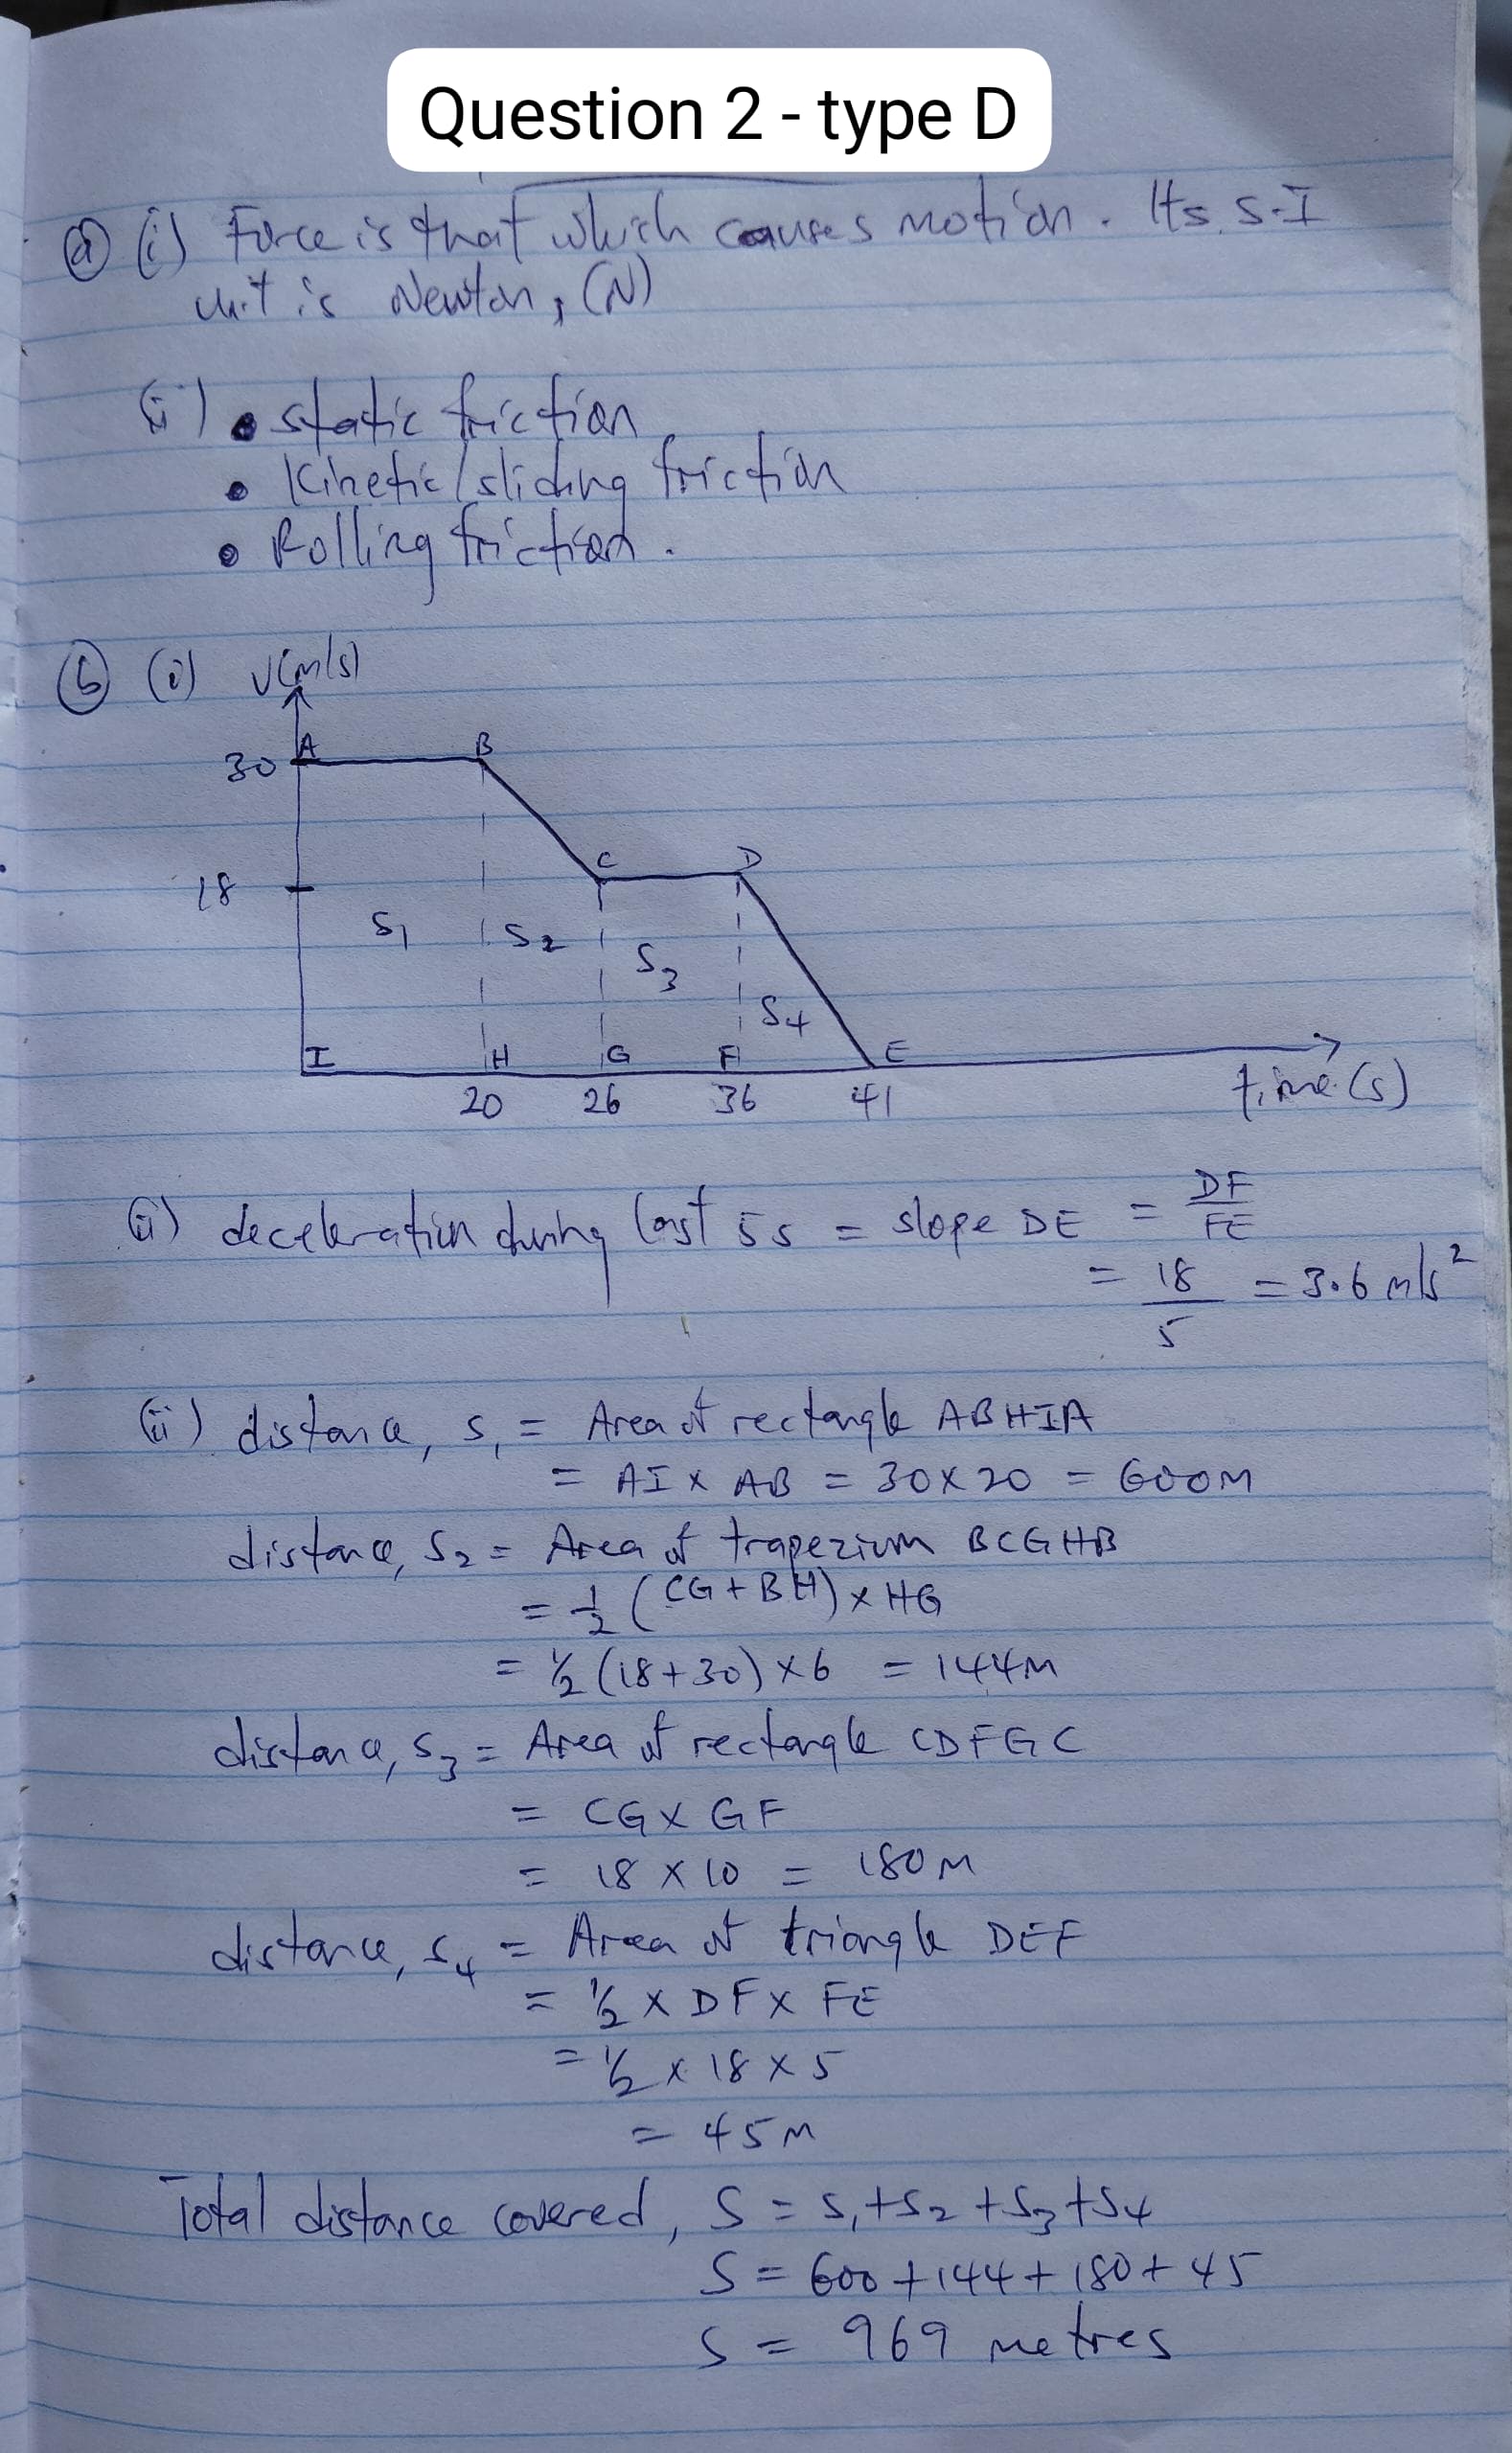 Question 2 - type D
(a) (i) Force is that which causes motion. Its S.I
unit is Newton, (N)
(ii) • static friction
• Kinetic/sliding friction
• Rolling friction.
(b) (i) V(m/s)
A B
30
C D
18
S₁ S₂ S₃
S₄
I H G F E
20 26 36 41 time (s)
(ii) deceleration during last 5s = slope DE = DF/FE
= 18/5 = 3.6 m/s²
(iii) distance, S₁ = Area of rectangle ABHIA
= AI x AB = 30 x 20 = 600m
distance, S₂ = Area of trapezium BCGHB
= 1/2 (CG + BH) x HG
= 1/2 (18+30) x 6 = 144m
distance, S₃ = Area of rectangle CDFGC
= CG x GF
= 18 x 10 = 180m
distance, S₄ = Area of triangle DEF
= 1/2 x DF x FE
= 1/2 x 18 x 5
= 45m
Total distance covered, S = S₁+S₂+S₃+S₄
S = 600+144+180+45
S = 969 metres